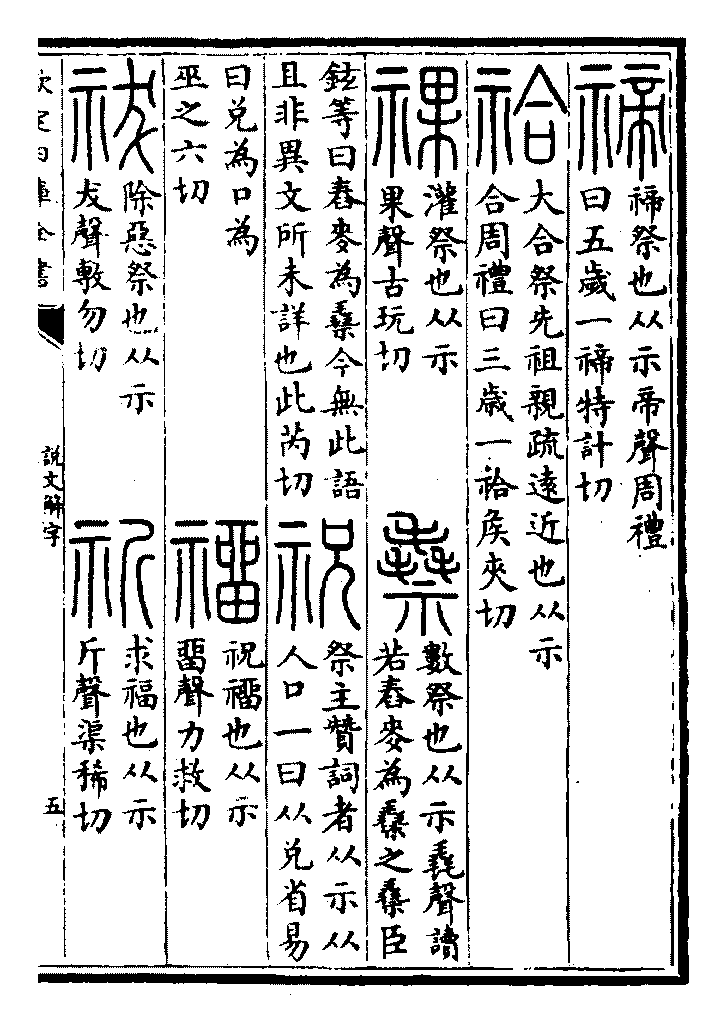 禘
禘祭也从示帝聲周禮
曰五歲一禘特計切
祫
大合祭先祖親疏逺近也从示
合周禮曰三歲一祫矦夾切
祼
灌祭也从示
果聲古玩切
𥜹
數祭也从示毳聲讀
若舂麥為𥜹之𥜹臣
鉉等曰舂麥為𥜹今無此語
且非異文所未詳也此芮切
祝
祭主贊詞者从示从
人口一曰从兌省易
曰兌為口為
巫之六切
䄂
祝䄂也从示
畱聲力救切
祓
除惡祭也从示
犮聲敷勿切
祈
求福也从示
斤聲渠稀切
欽定四庫全書
說文解字
五